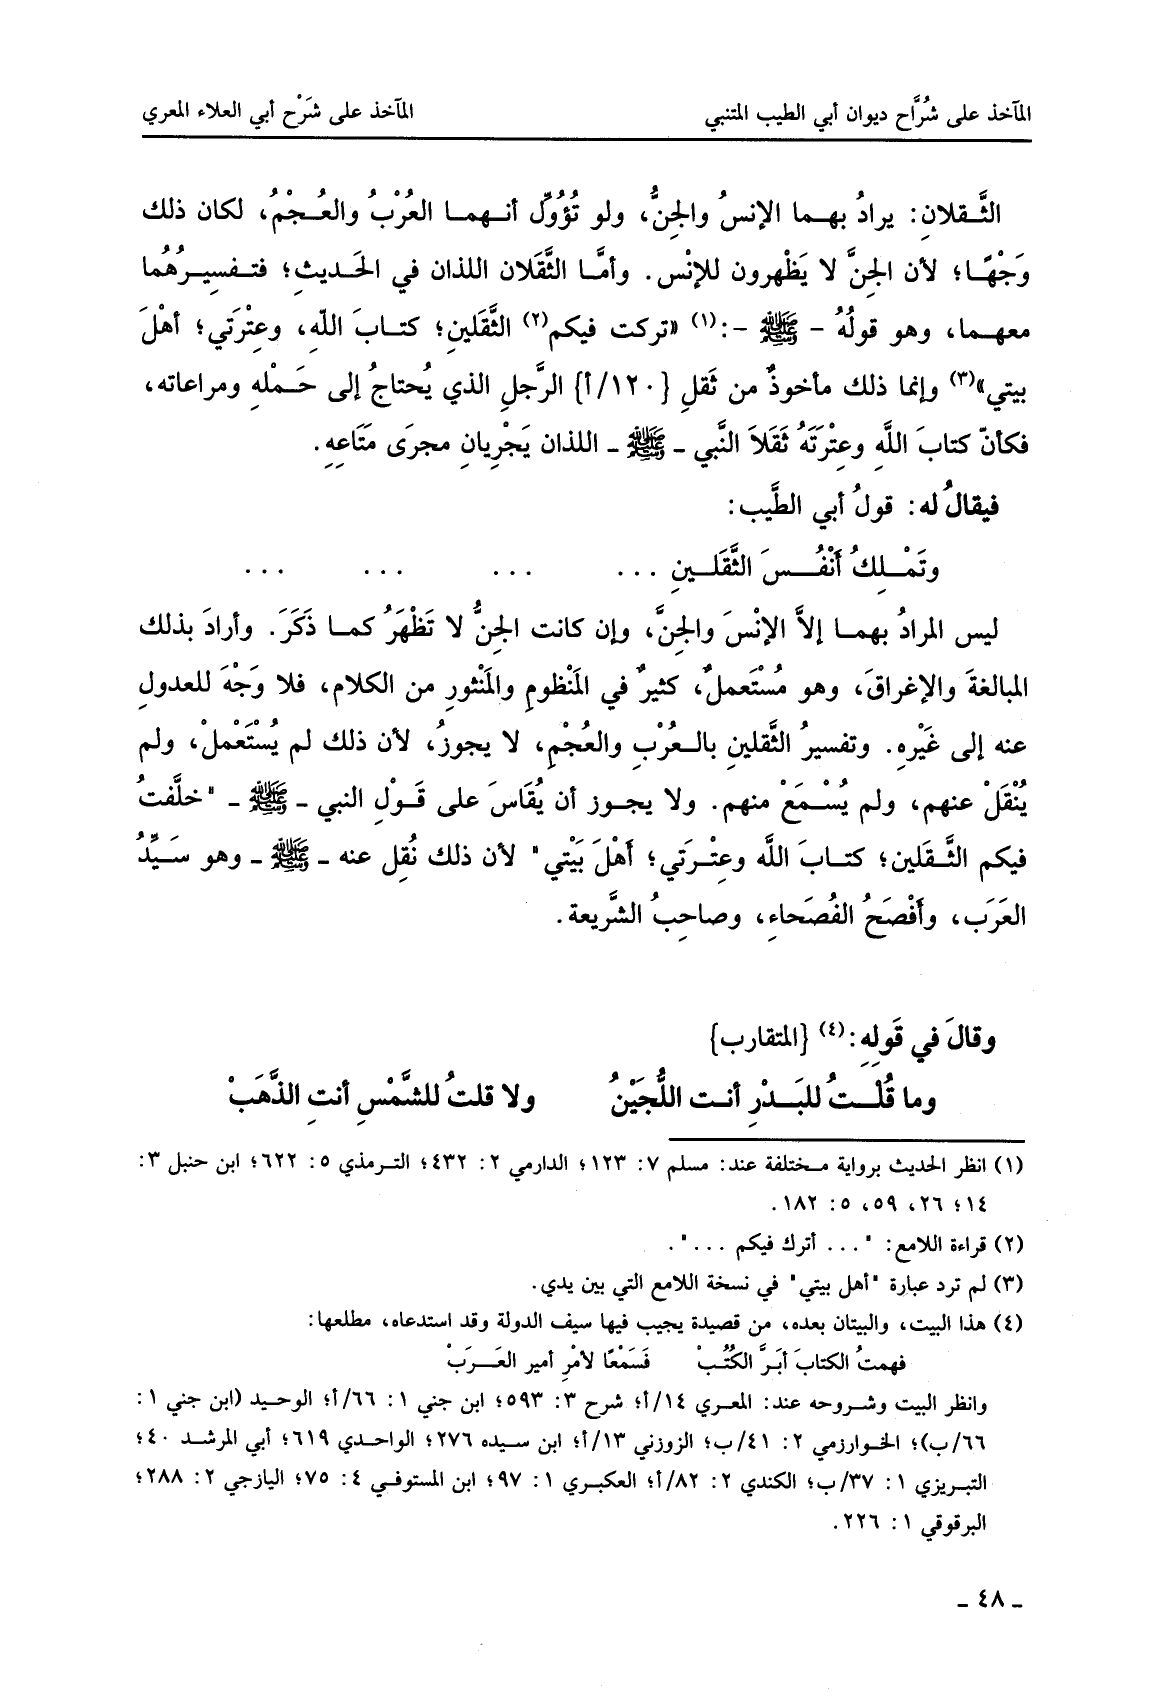 المآخذ على شُرَّاح ديوان أبي الطيب المتنبي المآخذ على شَرْح أبي العلاء المعري
الثَّقلانِ: يرادُ بهما الإنسُ والجنُّ، ولو تُؤُوِّل أنهما العُرْبُ والعُجْمُ، لكان ذلك
وَجْهًا؛ لأن الجِنَّ لا يَظْهرون للإنْس. وأمَّا الثَّقَلان اللذان في الحَديثِ؛ فتفسيرُهُما
معهما، وهو قولُهُ - ﷺ -:(١) «تركت فيكم(٢) الثَّقَلينِ؛ كتابَ اللَّهِ، وعِتْرَتي؛ أهْلَ
بيتي»(٣) وإنما ذلك مأخوذٌ من ثَقلِ {١٢٠/أ} الرَّجلِ الذي يُحتاجُ إلى حَمْلهِ ومراعاته،
فكأنّ كتابَ اللَّهِ وعِتْرَتَهُ ثَقَلاَ النَّبي - ﷺ - اللذان يَجْرِيانِ مجرَى مَتَاعِهِ.
فيقالُ له: قولُ أبي الطَّيب:
وتَمْلِكُ أَنْفُسَ الثَّقَلَينِ ... ... ... ...
ليس المرادُ بهما إلاَّ الإنْسَ والجِنَّ، وإن كانت الجنُّ لا تَظْهَرُ كما ذَكَرَ. وأرادَ بذلك
المبالغةَ والإغراقَ، وهو مُسْتَعملٌ، كثيرٌ في المَنْظومِ والمَنْثورِ من الكلام، فلا وَجْهَ للعدولِ
عنه إلى غَيْرِهِ. وتفسيرُ الثَّقلينِ بالعُرْبِ والعُجْمِ، لا يجوزُ، لأن ذلك لم يُسْتَعْملْ، ولم
يُنْقَلْ عنهم، ولم يُسْمَعْ منهم. ولا يجوز أن يُقَاسَ على قَوْلِ النبي - ﷺ - "خلَّفتُ
فيكم الثَّقَلين؛ كتابَ اللَّه وعِتْرَتي؛ أهْلَ بَيْتي" لأن ذلك نُقِل عنه - ﷺ - وهو سَيِّدُ
العَرَبِ، وأَفْصَحُ الفُصَحاءِ، وصاحِبُ الشَّريعة.
وقالَ في قَولِهِ:(٤) {المتقارب}
وما قُلْتُ للبَدْرِ أنت اللُّجَيْنُ ولا قلتُ للشَّمْسِ أنتِ الذَّهَبْ
(١) انظر الحديث برواية مختلفة عند: مسلم ٧: ١٢٣؛ الدارمي ٢: ٤٣٢؛ الترمذي ٥: ٦٢٢؛ ابن حنبل ٣:
١٤؛ ٢٦، ٥٩، ٥: ١٨٢.
(٢) قراءة اللامع: "... أترك فيكم ...".
(٣) لم ترد عبارة "أهل بيتي" في نسخة اللامع التي بين يدي.
(٤) هذا البيت، والبيتان بعده، من قصيدة يجيب فيها سيف الدولة وقد استدعاه، مطلعها:
فهمتُ الكتابَ أبَرَّ الكُتُبْ فَسَمْعًا لأمْرِ أمير العَرَبْ
وانظر البيت وشروحه عند: المعري ١٤/أ؛ شرح ٣: ٥٩٣؛ ابن جني ١: ٦٦/أ؛ الوحيد (ابن جني ١:
٦٦/ب)؛ الخوارزمي ٢: ٤١/ب؛ الزوزني ١٣/أ؛ ابن سيده ٢٧٦؛ الواحدي ٦١٩؛ أبي المرشد ٤٠؛
التبريزي ١: ٣٧/ب؛ الكندي ٢: ٨٢/أ؛ العكبري ١: ٩٧؛ ابن المستوفي ٤: ٧٥؛ اليازجي ٢: ٢٨٨؛
البرقوقي ١: ٢٢٦.
- ٤٨ -